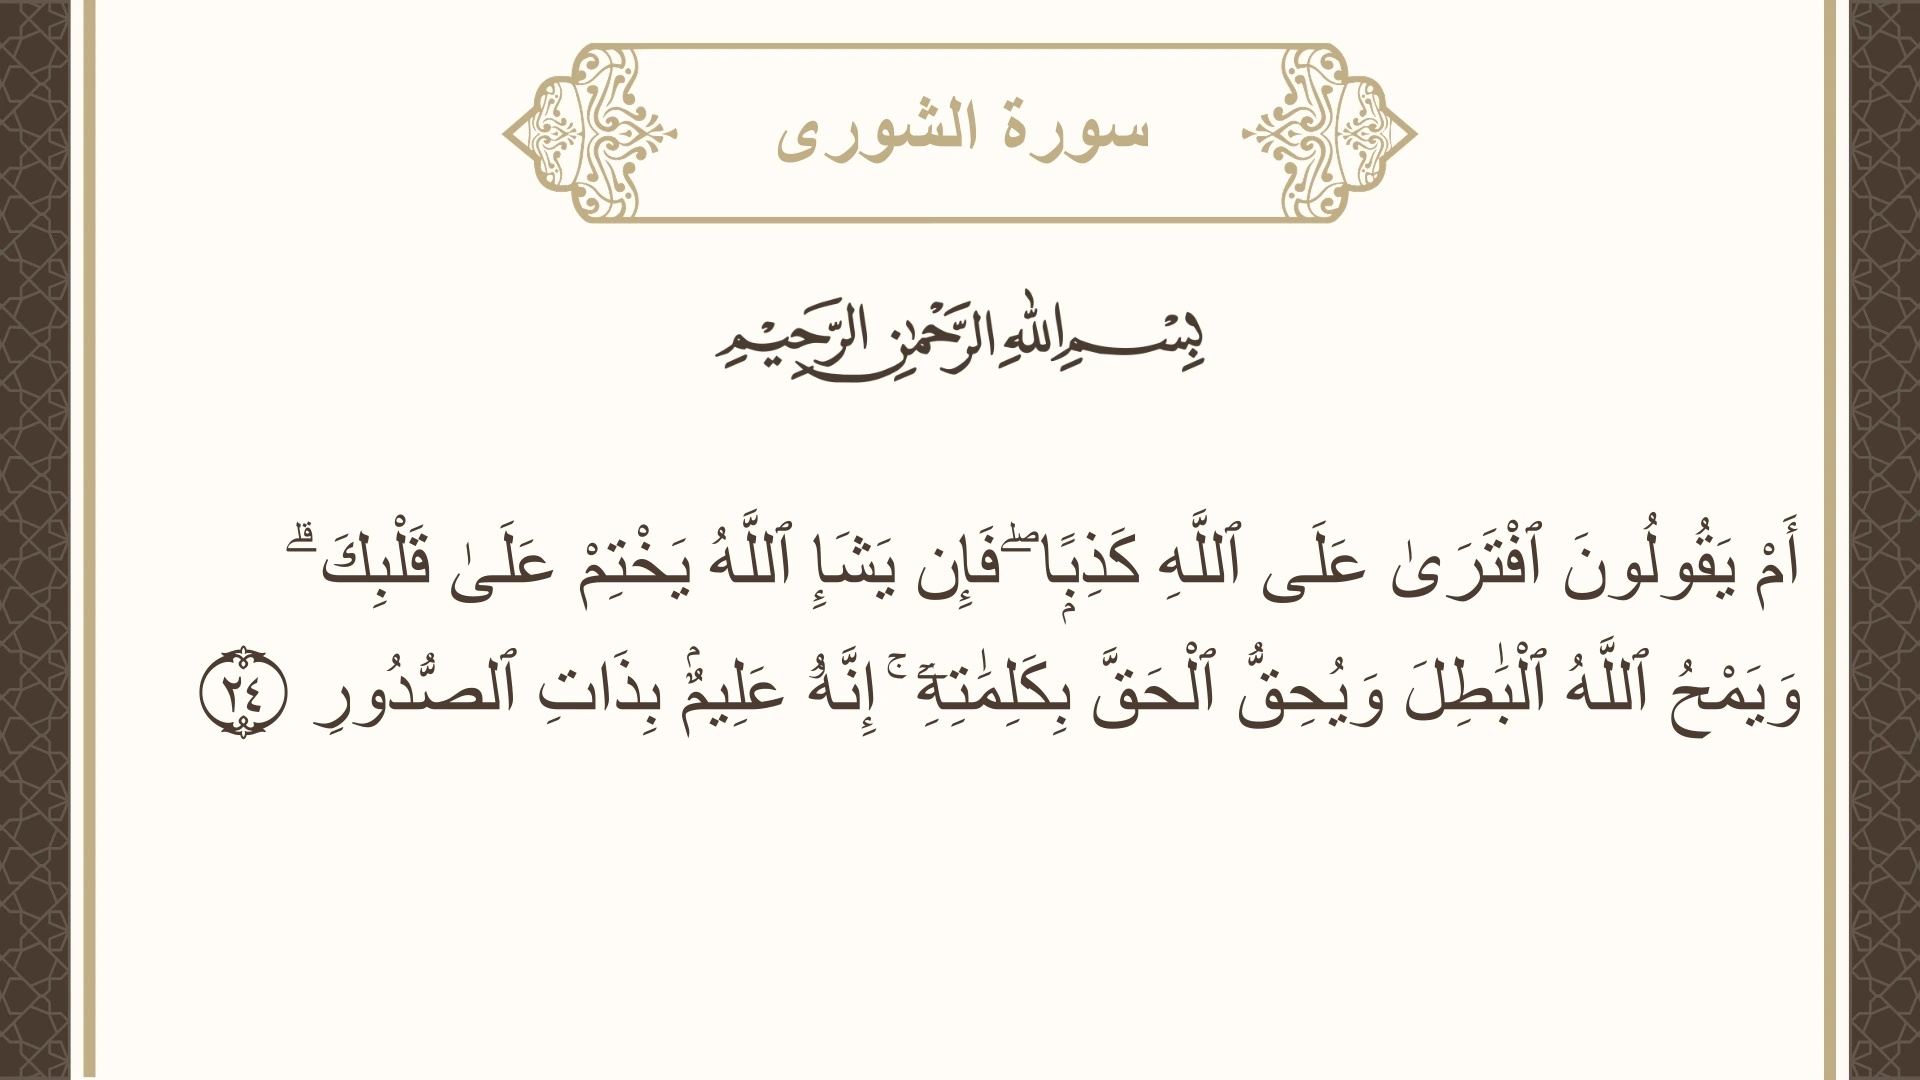 سورة الشورى
بِسْمِ اللهِ الرَّحْمٰنِ الرَّحِيْمِ
أَمْ يَقُولُونَ ٱفْتَرَىٰ عَلَى ٱللَّهِ كَذِبًۭا ۖ فَإِن يَشَإِ ٱللَّهُ يَخْتِمْ عَلَىٰ قَلْبِكَ ۗ
وَيَمْحُ ٱللَّهُ ٱلْبَـٰطِلَ وَيُحِقُّ ٱلْحَقَّ بِكَلِمَـٰتِهِۦٓ ۚ إِنَّهُۥ عَلِيمٌۢ بِذَاتِ ٱلصُّدُورِ ٢٤